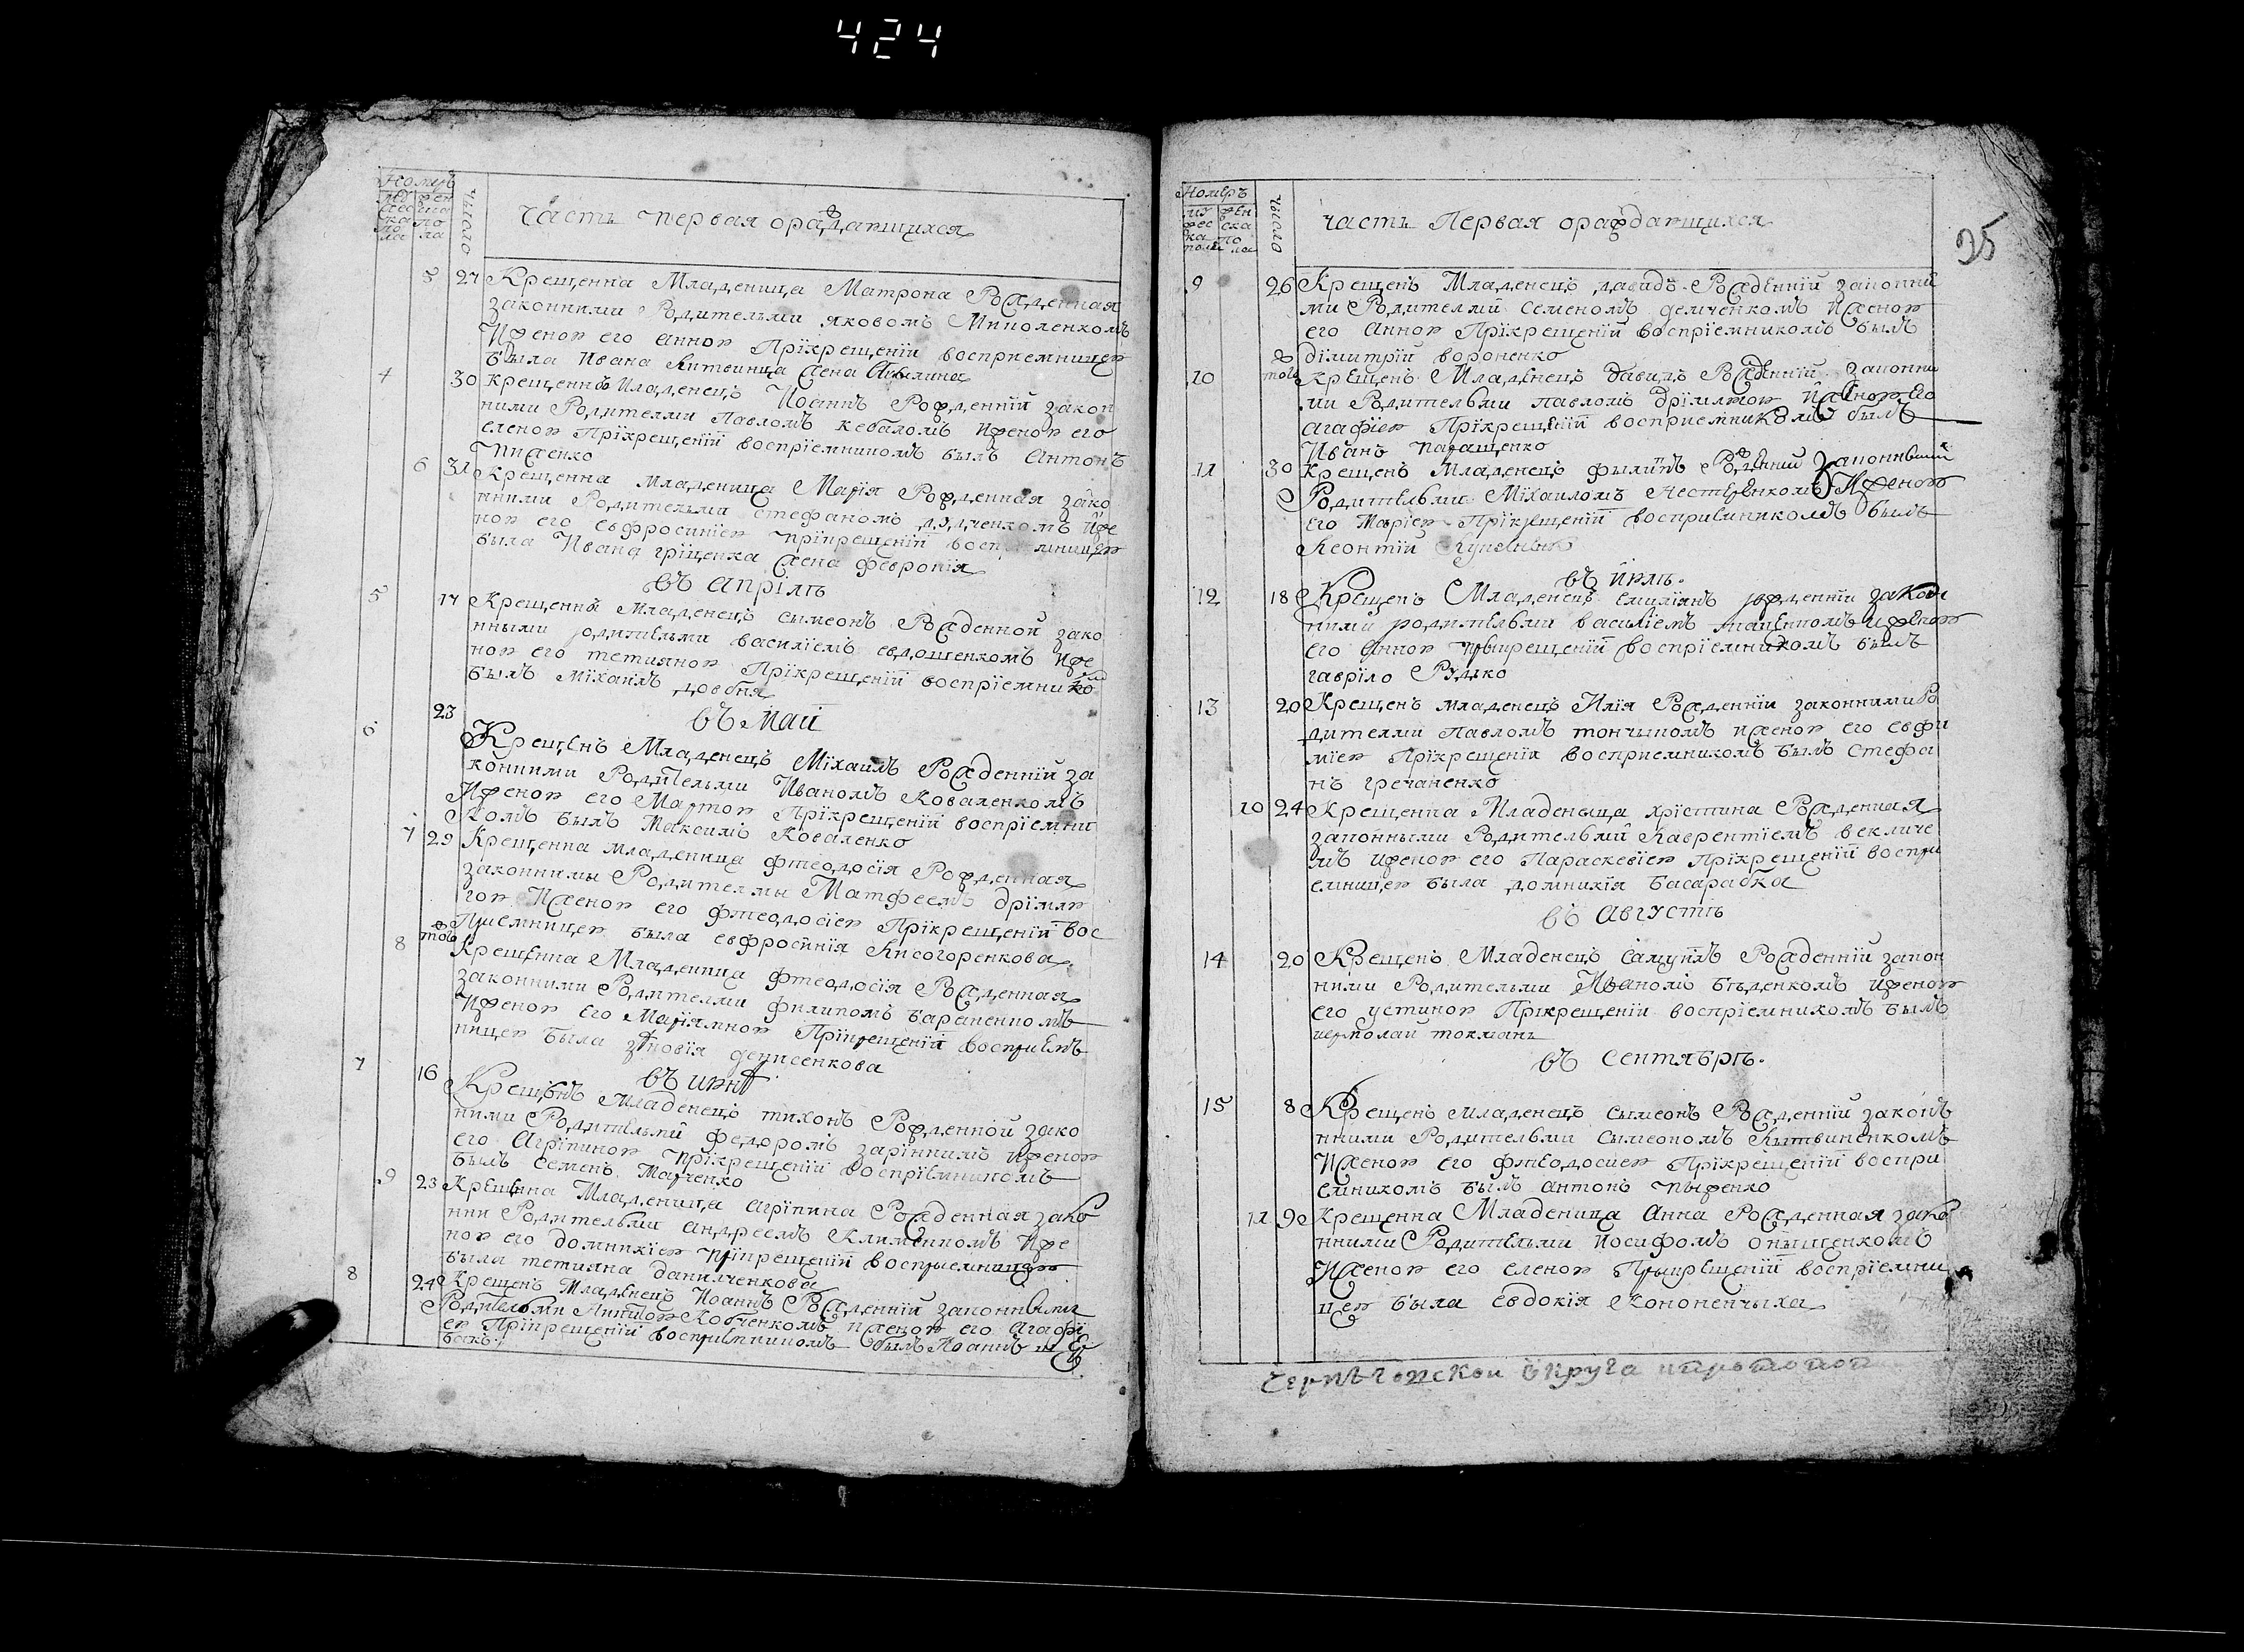 424
Номеръ
число
часть первая ораждающихся
5 27 Крещенна Младеница Матрона Рожденная
законними Родительми яковомъ
Иженою его анною Прїкрещенїи восприемницею
была Ивана Литвинца жена
4 30 крещеннъ Младенецъ Иоаннъ Рожденнїй закон
ними Родителми Павломъ кебаломъ Иженою его
еленою Прїкрещенїй воспрїемникомъ былъ Антонъ
Пиженко
6 31 Крещенна младеница Марїя Рожденная зако
нними Родительми стефаномъ дядченкомъ Иже
ною его евфросинїею прїкрещенїи восприемницею
была Ивана грїценка жена феврония
въ апрїлѣ
5 17 Крещеннъ Младенецъ сымеонъ Рожденной зако
нными родительми василїемъ евдошенкомъ Иже
ною его тетияною Прїкрещенїй воспрїемнико
былъ мїхаилъ довбня
въ Маи
6 23 Крещенъ Младенецъ Мїхаилъ Рожденнїй за
конними Родительми Иваномъ Коваленкомъ
Иженою его Мартою Прїкрещенїй воспрїемни
комъ былъ Максимъ Коваленко
7 29 Крещенна младеница фтеодосїя Рожденная
законнимы Родителмы Матфеемъ дрїмлю
гою Иженою его фтеодосїею Прїкрещенїй вос
Приемницею была евфросинїя Лисогоренкова
8 тогож Крещенна Младеница фтеодосїя Рожденная
законними Родителми филипомъ бараненкомъ
Иженою его Марїямною Прїкрещенїй восприем
ницею была зѣновїя денисенкова
въ июнѣ
7 16 Крещенъ Младенецъ тихонъ Рожденной зако
ними Родительми федоромъ зарїннимъ Иженою
его Агрїпиною прїкрещенїй воспрїемникомъ
былъ семенъ Марченко
9 23 Крещенна Младеница агрїпина Рожденная зако
нии Родительми андреемъ Клименкомъ Иже
ною его домникїею прїкрещенїй восприемницею
была тетияна данилченкова
8 24 Крещенъ Младенецъ Иоаннъ Рожденнїй законными
Родительми Кобченкомъ Иженою его Агафї
ею Прїкрещенїй воспрїемникомъ былъ Иоаннъ
Номеръ
число
часть Первая ораждающихся
95
9 26 Крещенъ Младенецъ давидъ Рожденнїй законни
ми Родителмй Семеномъ демченкомъ Иженою
его Анною Прїкрещенїй воспрїемникомъ былъ
дїмитрїй вороненко
10 тогож Крещенъ Младенецъ давидъ Рожденнїй законни
ми Родительми павломъ дрїмлюгою Иженою его
агафїею Прїкрещенїй воспрїемникомъ былъ
Иванъ парященко
11 30 крещенъ Младенецъ филипъ Рожденнїй законними
Родительми Мїхаиломъ Нестеренкомъ Иженою
его Марїею Прїкрещенїй восприемникомъ былъ
Леонтїй
въ июлѣ
12 18 Крещенъ Младенецъ емилїянъ рожденнїи закон
ними родительми василїемъ Иженою
его Анною прыкрещенїй воспрїемникомъ былъ
гаврїло Рудко
13 20 Крещенъ младенецъ Илїя Рожденнїи законними Ро
дителми Павломъ Иженою его евфи
мїею Прїкрещенїи восприемникомъ былъ стефа
нъ гречаненко
10 24 Крещенна Младеныца хрїстина Рожденная
законными Родительмй Лаврентїемъ векличе
мъ Иженою его Параскевїею Прїкрещенїй воспри
емницею была домникїя басарабка
въ Августѣ
14 20 Крещенъ Младенецъ самуилъ Рожденнїй закон
ними Родительми Иваномъ бѣденкомъ Иженою
его устиною Прїкрещенїи воспрїемникомъ былъ
токманъ
въ сентябрѣ
15 8 Крещенъ Младенецъ сымеонъ Рожденнїй законъ
нними Родительми сымеономъ Лытвиненкомъ
Иженою его фтеодосиею Прїкрещенїй воспри
емникомъ былъ антонъ пыженко
11 90 Крещенна Младеница Анна Рожденная зако
нними Родительми иосифомъ онищенкомъ
Иженою его еленою Прыкрещенїй воспрїемни
цею была евдокїя Кононенчыха
Чернѣговской округа протопоп